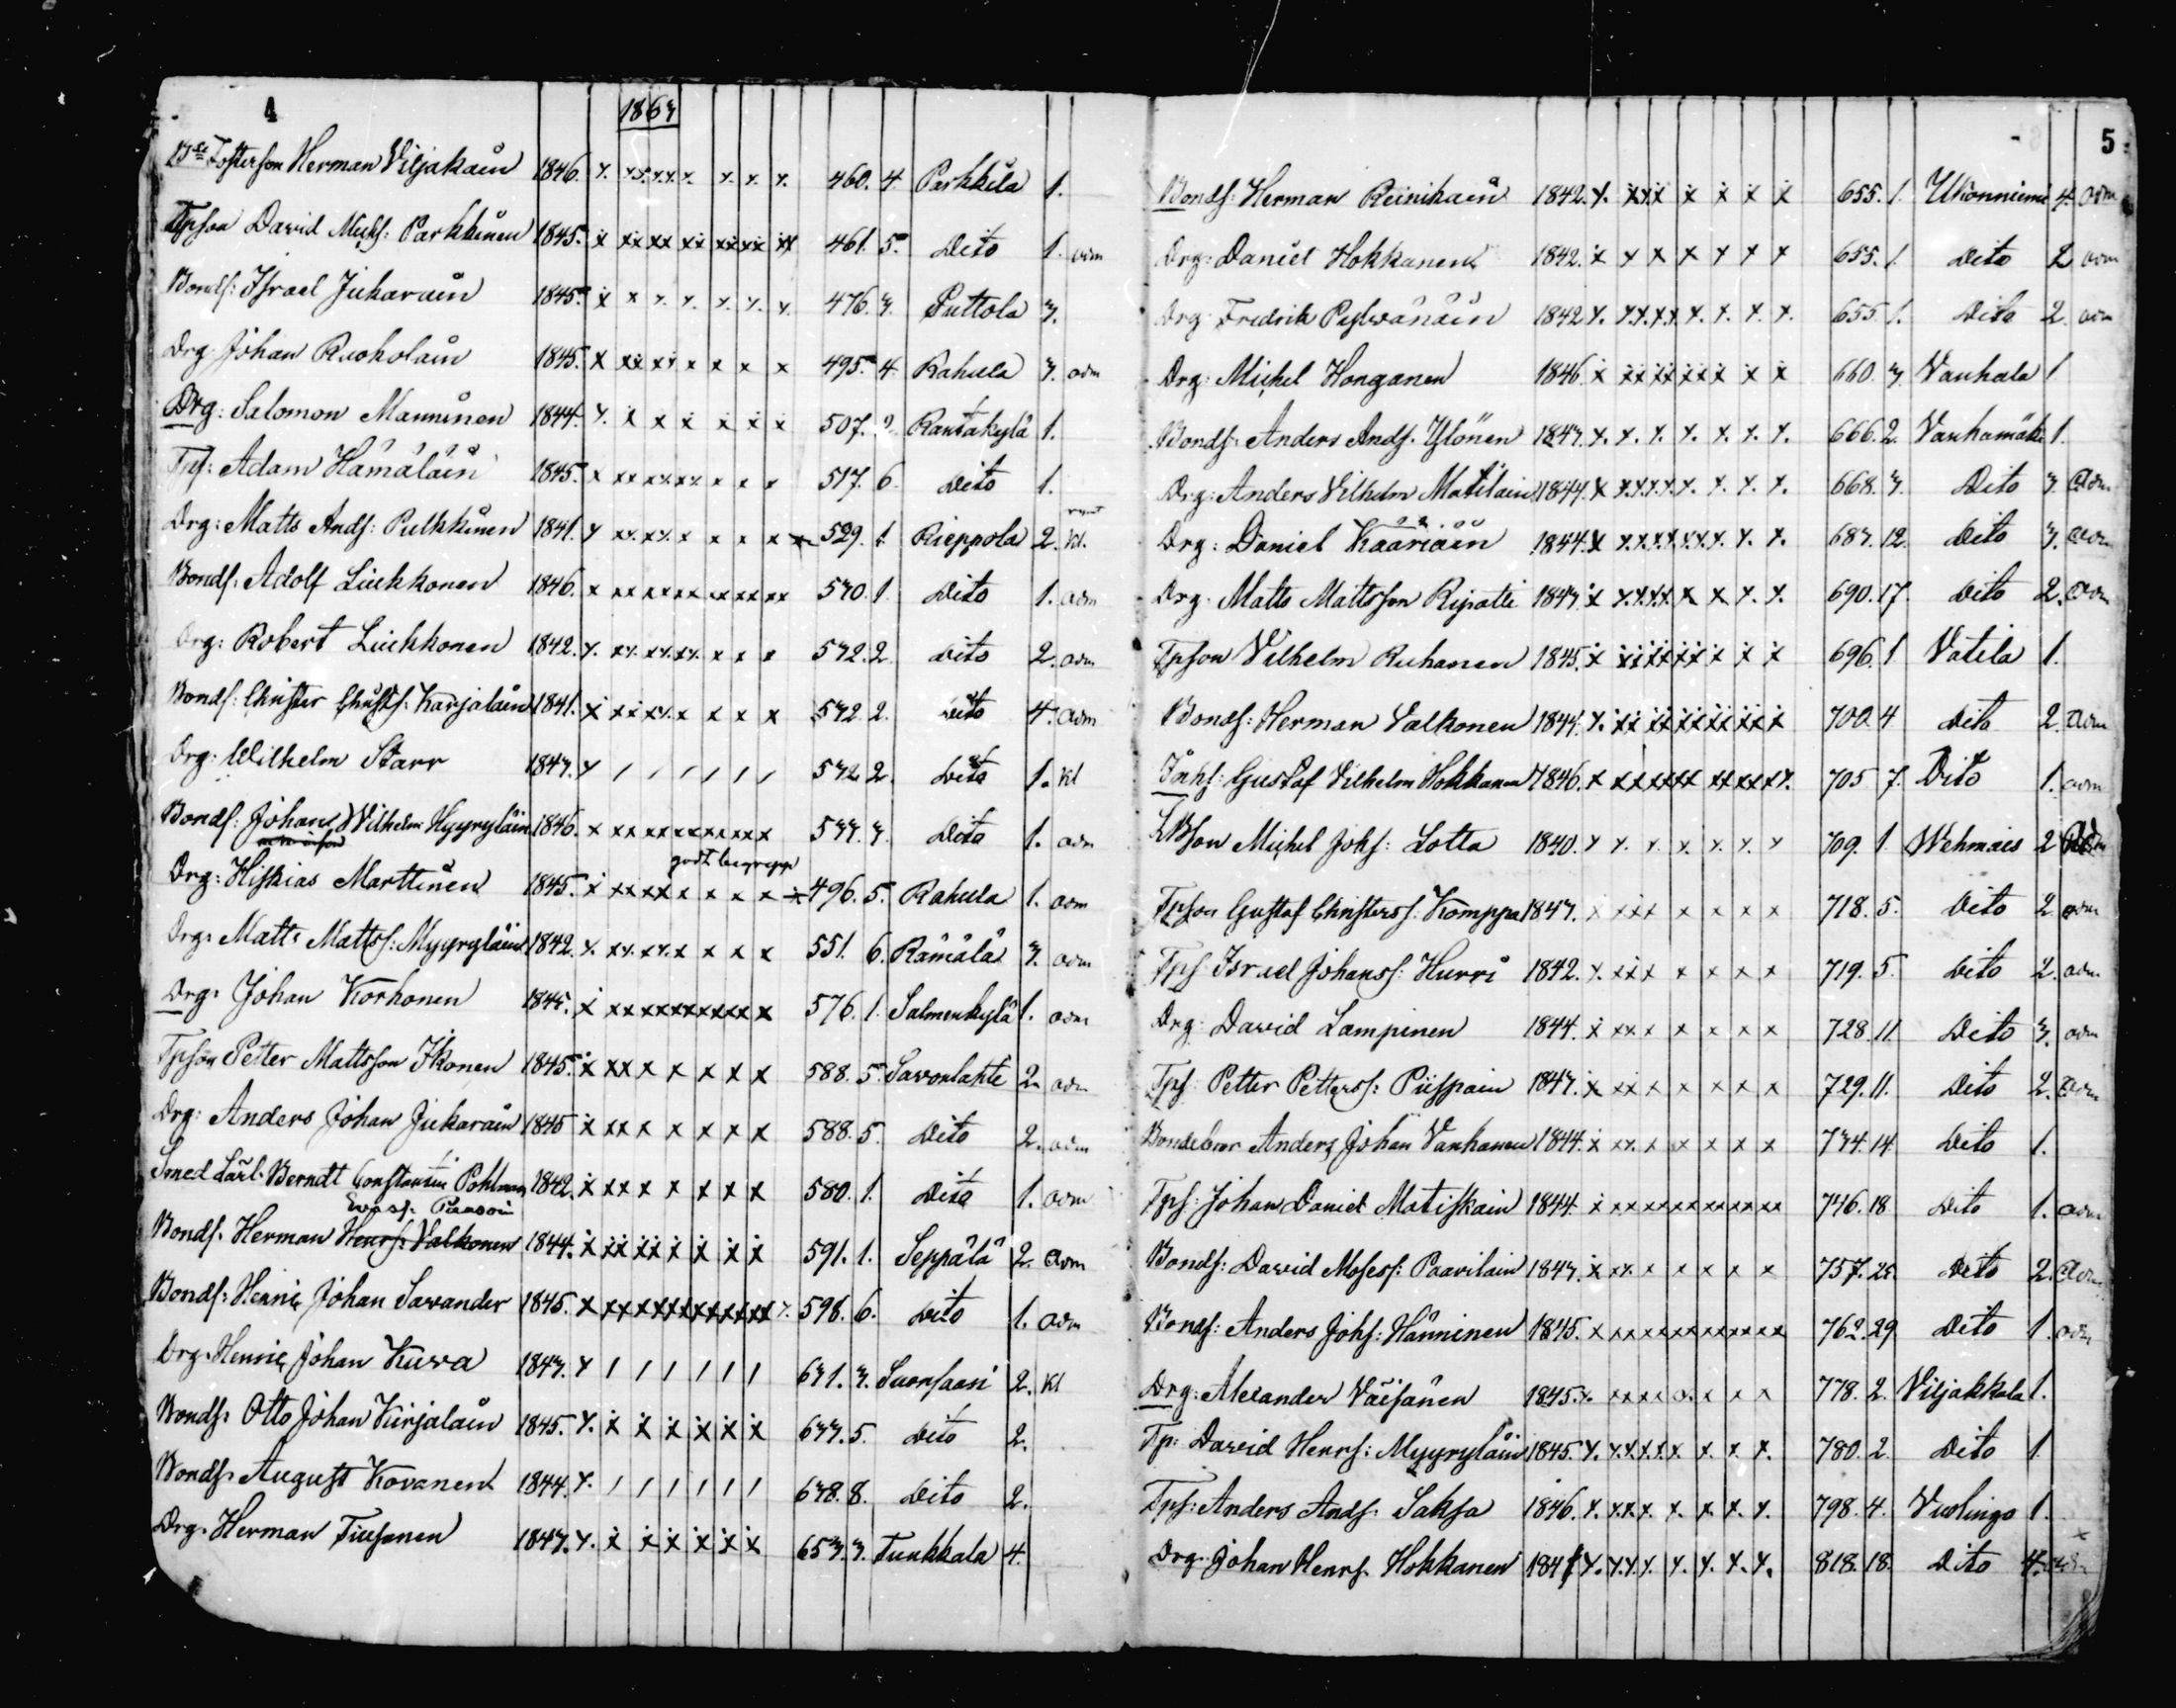 4
1863
Bde Fosterson Herman Viljakain 1846. x. x.x.x.x.x. x. x. x. 460. 4 Parkkila 1.
Tpson David Michs: Parkkinen 1845. x xx xx xx xx xx xx 461. 5. Dito 1. adm
Bonds: Israel Jukarain 1845. x x x. x. x. x. x. 476. 3. Puttola 3.
Drg: Johan Ruoholain 1845. x xx xx x x x x 495. 4 Rahula 3. adm
Drg: Salomon Manninen 1844. x. x x x x x x 507. 2. Rantakylä 1.
Tps: Adam Hämäläin 1845. x xx xx xx x x x 517. 6. Dito 1.
Drg: Matts Ands: Pulkkinen 1841. x xx. xx. x x x x x 529. 1. Rieppola 2. kl.
Bonds: Adolf Liukkonen 1846. x xx xx xx xx xx xx 530. 1. Dito 1. adm
Drg: Robert Liukkonen 1842. x. xx. xx. xx. x x x 532. 2. Dito 2. adm
Bonds: Christer Christs: Karjalain 1841. x xx xx. x x x x 532. 2. Dito 4. adm
Drg: Wilhelm Starr 1843. x / / / / / / 532. 2. Dito 1. kl
Bonds: Johan Wilhelm Hyyryläin 1846. x xx xx xx xx xx x 533. 3. Dito 1. adm
godt begrepp
Drg: Hiskias Marttinen 1845. x xx xx x x x x x 496. 5. Rahula 1. adm
Drg: Matts Mattss: Myyryläin 1842. x. xx. xx. x x x x 551. 6. Rämälä 3. adm
Drg: Johan Korhonen 1845. x xx xx xx xx xx x 576. 1. Salmenkylä 1. adm
Tpson Petter Mattsson Ikonen 1845. x xx x x x x x 588. 5. Savonlahti 2. adm
Drg: Anders Johan Jukarain 1845 x xx x x x x x 588. 5. Dito 2. adm
Smed Lärl: Berndt Constantin Pohlman 1842. x xx x x x x x 580. 1. Dito 1. adm
Evass: Paasoin
Bonds: Herman Henrs: Valkonen 1844. x xx xx x x x x 591. 1. Seppälä 2. adm
Bonds: Henric Johan Savander 1845. x xx xx xx xx xx xx x. 598. 6. Dito 1. adm
Drg: Henric Johan Kuva 1843. x / / / / / / 631. 3. Suonsaari 2. kl
Bonds: Otto Johan Kirjalain 1845. x. x x x x x x 633. 5. Dito 2.
Bonds: August Kovanen 1844. x. / / / / / / 638. 8. Dito 2.
Drg: Herman Tiusanen 1843. x. x x x x x x 653. 3. Tunkkala 4.
5
Bonds: Herman Reinikain 1842. x. xxx x x x x 655. 1. Ukonniemi 4. adm
Drg: Daniel Hokkanen 1842. x x x x x x x 655. 1. Dito 2 adm
Drg: Fredrik Pylvänäin 1842 x. x.x.x.x. x. x. x. x. 655. 1. Dito 2. adm
Drg: Michel Honganen 1846. x xx xx xx x x x 660. 3. Vanhala 1
Bonds: Anders Ands. Ylönen 1843. x. x. x. x. x. x. x. 666. 2. Vanhamäki 1.
Drg: Anders Vilhelm Matilain 1844. x x.x.x.x.x. x. x. x. 668. 3. Dito 3. adm
Drg: Daniel Kääriäin 1844. x x.x.x.x.x.x.x. x. x. 683. 12. Dito 3. adm
Drg. Matts Mattsson Ripatti 1843. x x.x.x.x. x x x. x. 690. 17. Dito 2. adm
Tpson Vilhelm Ruhanen 1845. x xx xx xx x x x 696. 1 Vatila 1.
Bonds: Herman Valkonen 1844. x. xx xx xx xx xx x 700. 4 Dito 2. adm
Inhs: Gustaf Vilhelm Hokkanen 1846. x xx xx xx xx xx x. 705 7. Dito 1. adm
Michel Johs: Lotta 1840. x x. x. x. x. x. x 709. 1. Wehmais 2 adm
Tpson Gustaf Christerss: Komppa 1843. x xxx x x x x 718. 5. Dito 2 adm
Tps Israel Johanss: Hurri 1842. x. xxx x x x x 719. 5. Dito 2. adm
Drg: David Lampinen 1844. x xx x x x x x 728. 11. Dito 3. adm
Tps: Petter Petterss: Piispain 1843. x xx x x x x x 729. 11. Dito 2. adm
Bondebror Anders Johan Vanhanen 1844. x xx. x x x x x 734. 14. Dito 1.
Tps: Johan Daniel Matiskain 1844. x xx xx xx xx xx xx 746. 18. Dito 1. adm
Bonds: David Mosess: Paavilain 1843. x xx. x x x x x 757. 25. Dito 2. adm
Bonds: Anders Johs: Hänninen 1845. x xx xx xx xx xx xx 762. 29 Dito 1. adm
Drg: Alexander Väisänen 1845. x. xx xx x x x x 778. 2. Viljakkala 1.
Tp: David Henrs: Myyryläin 1845. x. x.x.x.x.x x. x. x. 780. 2 Dito 1
Tps: Anders Ands: Saksa 1846. x. x.x.x. x. x. x. x. 798. 4. Vuolingo 1.
Drg: Johan Henrs. Hokkanen 1841 x. x.x.x. x. x. x. x. 818. 18. Dito 4. adm